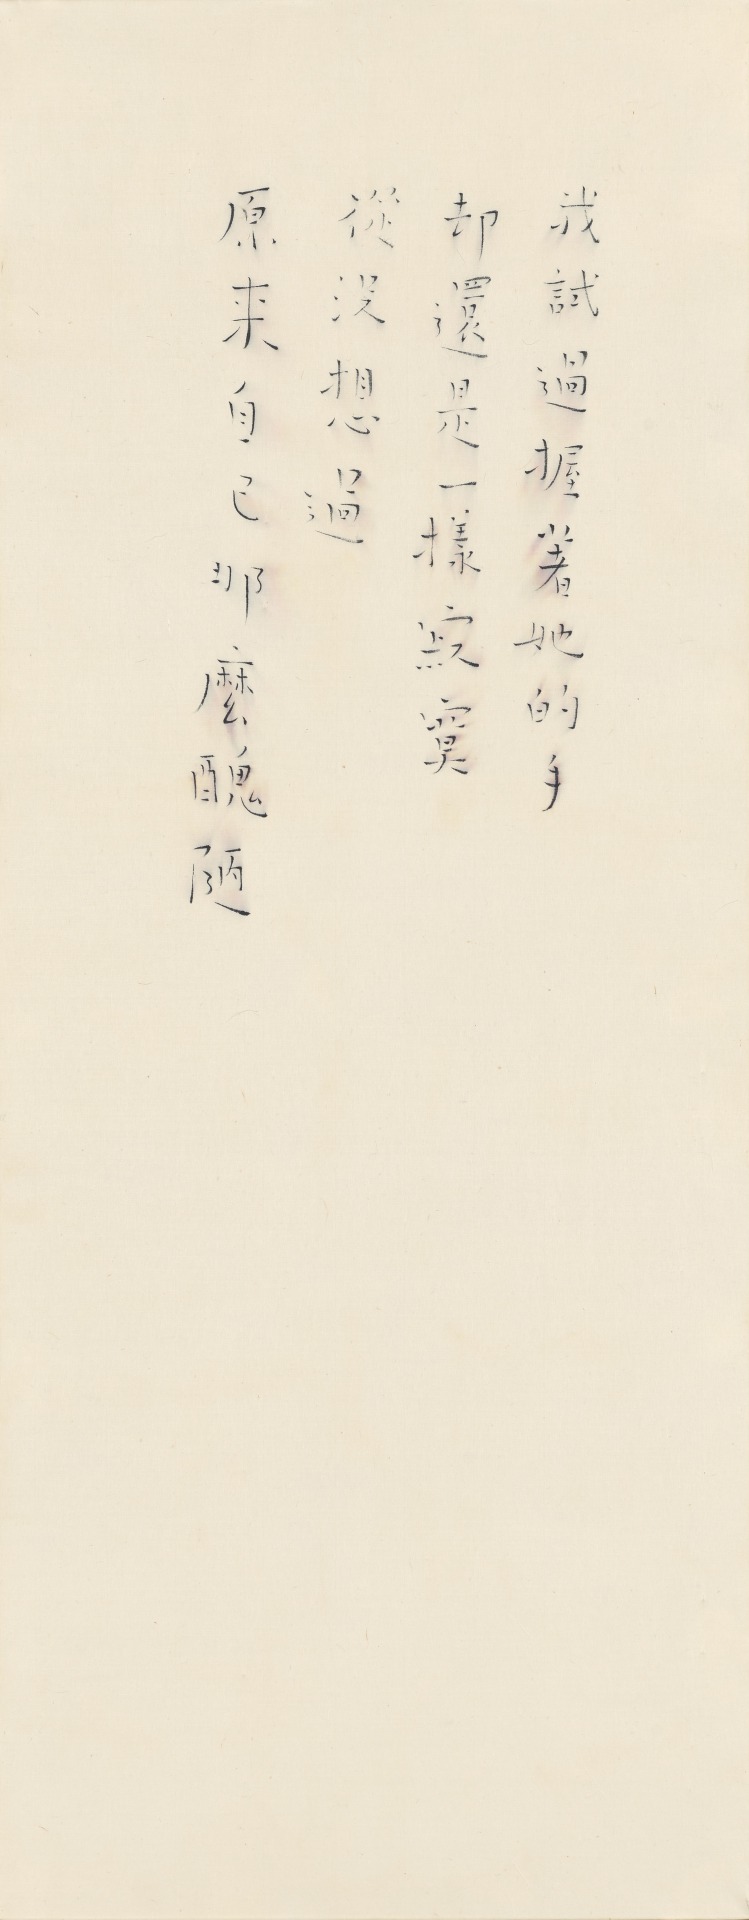 我試過握著她的手
却還是一樣寂寞
從没想過
原来自己那麼醜陋